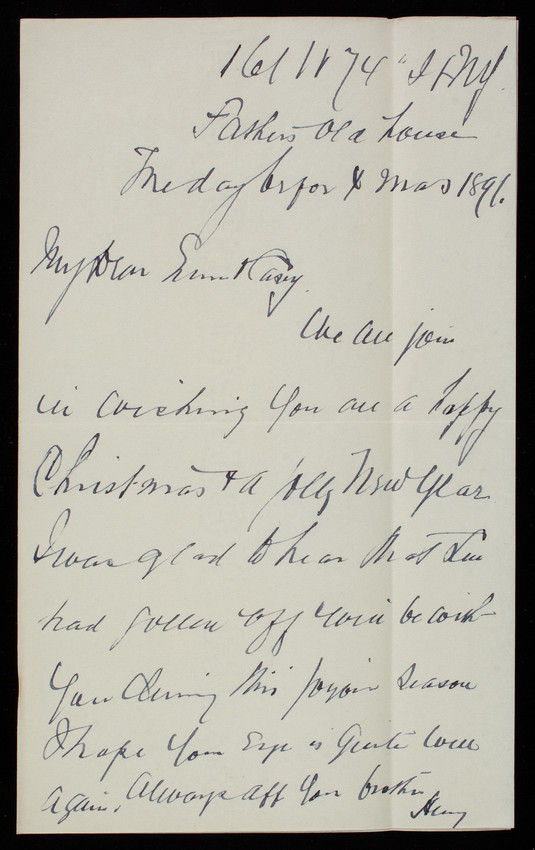 161 W 74 " St NY.
Fathers old house
The day befor X mas 1891.
My Dear Em & Casey.
We all join
in wishing you all a happy
Christmas & a jolly New Year
I was glad to hear that
had gotten off & will be with
you during this joyous season
I hope your Eye is quite well
again. Always aff your brother
Henry